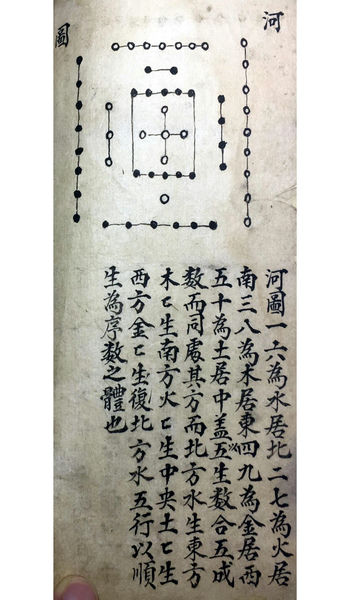 河
圖
河圖一六為水居北二七為火居
南三八為木居東四九為金居西
五十為土居中盖以五生数合五成
数而同處其方而北方水生東方
木匕生南方火匕生中央土匕生
西方金匕生復北方水五行以順
生為序数之體也